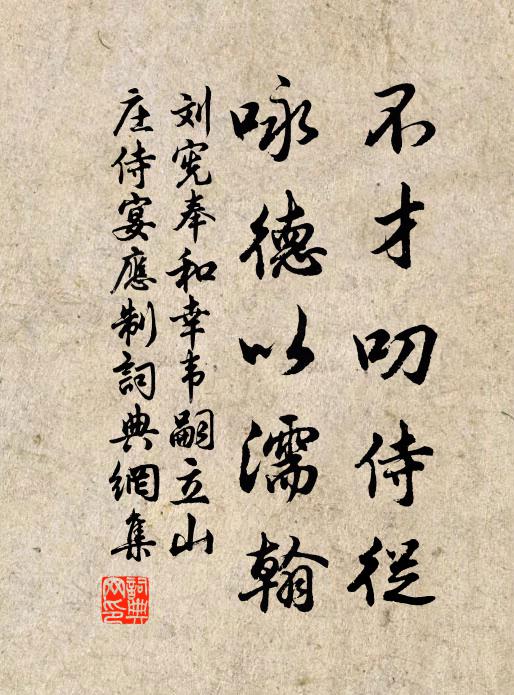 不才叨侍從
咏德以濡翰
刘宪奉和幸韦嗣立山
庄侍宴應制詞典網集
詞典网印